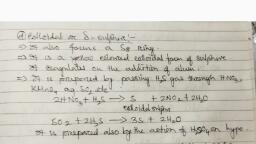 ④ Colloidal or δ- sulphur :-
⇒ It also forms a S8 ring.
⇒ It is a white colored colloidal form of sulphur
It coagulates on the addition of alum.
⇒ It is prepared by passing H2S gas through HNO3,
KMnO4 aq SO2 etc
2HNO3 + H2S → S + 2NO2 + 2H2O
colloidal
SO2 + 2H2S → 3S + 2H2O
It is prepared also by the action of on hypo